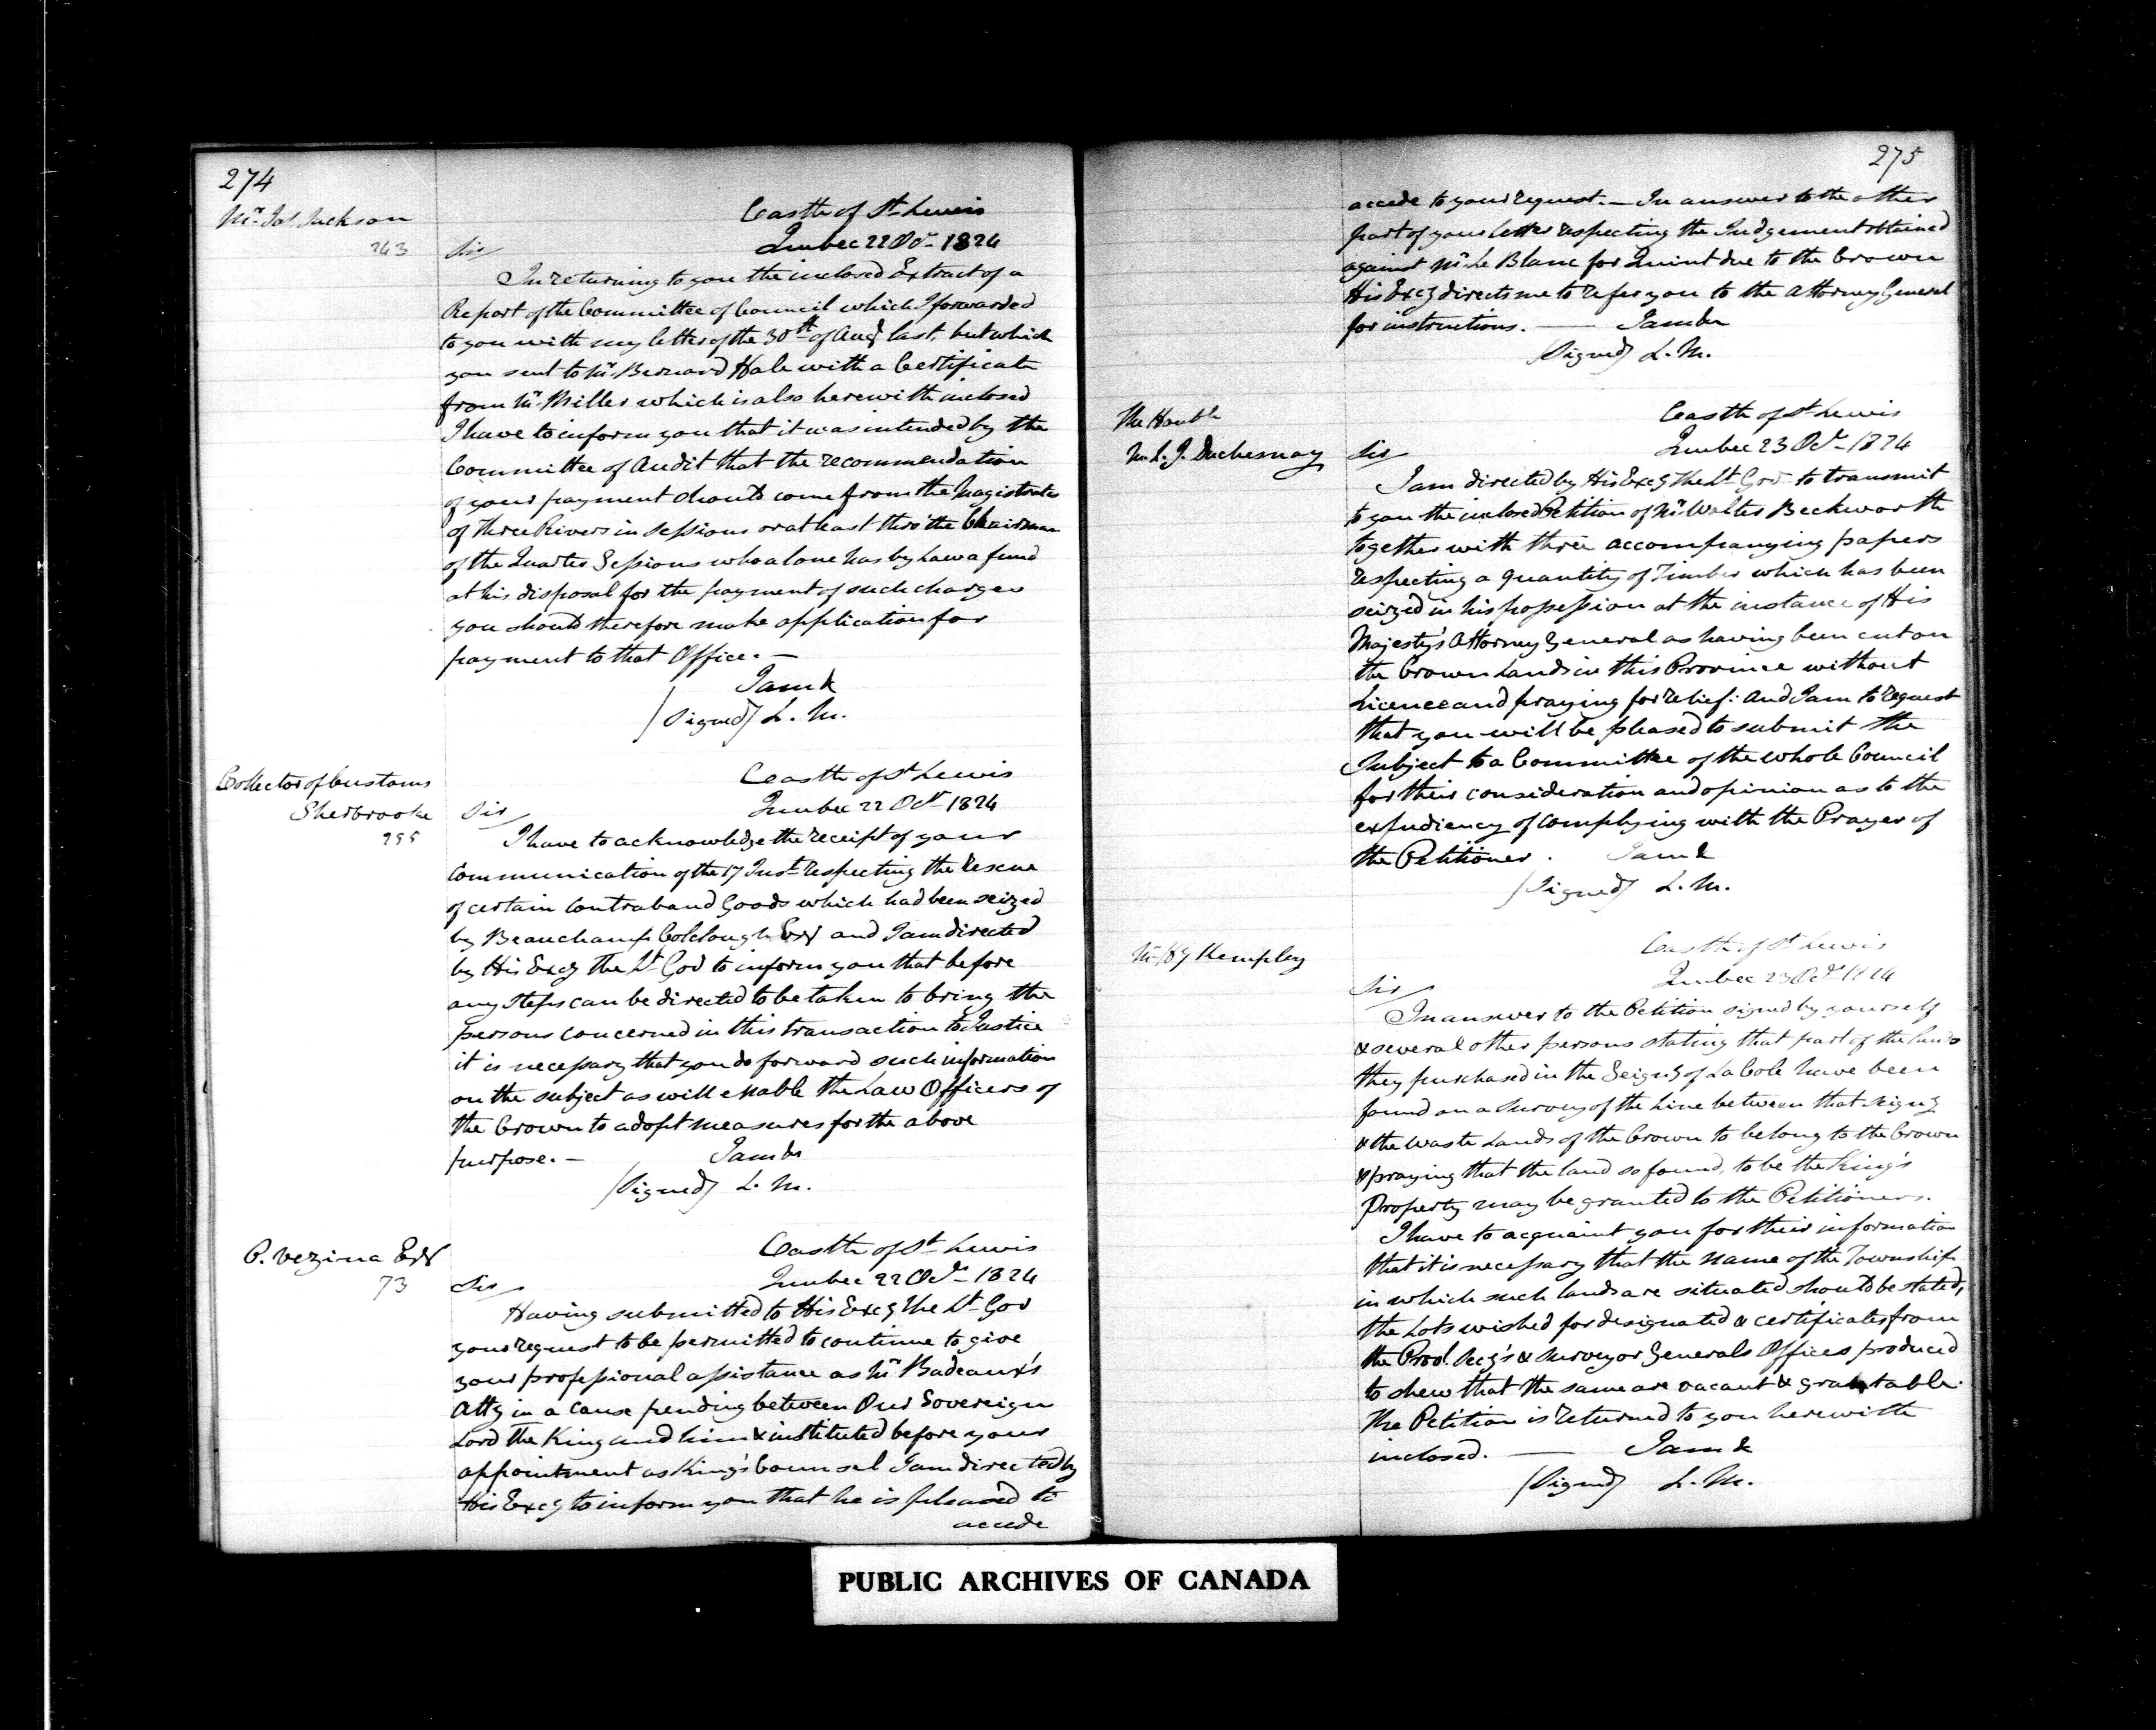 274
Mr. Jas. Jackson
243
Castle of St. Lewis
Quebec 22 Octr. 1824
Sir
In returning to you the inclosed Extract of a
Report of the Committee of Council which I forwarded
to you with my letter of the 30th of Augt last, but which
you sent to Mr. Bernard Hale with a Certificate
from Mr. Miller which is also herewith inclosed
I have to inform you that it was intended by the
Committee of Audit that the recommendation
of your payment should come from the Magistrates
of Three Rivers in Sessions or at least thro' the Chairman
of the Quarter Sessions who alone has by Law a fund
at his disposal for the payment of such charges
you should therefore make application for
payment to that Office. —
I am &
/Signed/ L. M.
Collector of Customs
Sherbrooke
255
Castle of St. Lewis
Quebec 22 Octr 1824
Sir
I have to acknowledge the receipt of your
Communication of the 17 Inst. respecting the rescue
of certain Contraband Goods which had been seized
by Beauchamp Colclough Esqr and I am directed
by His Excy The Lt. Gov to inform you that before
any steps can be directed to be taken to bring the
persons concerned in this transaction to Justice
it is necessary that you do forward such information
on the subject as will enable the Law Officers of
the Crown to adopt measures for the above
purpose. —
I am &c
/Signed/ L. M.
P. Vezina Esqr
73
Castle of St. Lewis
Quebec 22 Octr. 1824
Sir
Having submitted to His Excy The Lt. Gov
your request to be permitted to continue to give
your professional assistance as Mr. Badeaux's
Atty in a cause pending between Our Sovereign
Lord The King and him & instituted before your
appointment as King's Counsel I am directed by
His Excy to inform you that he is pleased to
accede
275
accede to your request. — In answer to the other
part of your letter respecting the Judgement obtained
against Mr. Le Blanc for Quint due to the Crown
His Excy directs me to refer you to the Attorney General
for instructions. — I am &c
/Signed/ L. M.
The Honble
M. L. J. Duchesnay
Castle of St. Lewis
Quebec 23 Octr. 1824
Sir
I am directed by His Excy The Lt. Gov. to transmit
to you the inclosed Petition of Mr. Walter Beckworth
together with three accompanying papers
respecting a quantity of Timber which has been
seized in his possession at the instance of His
Majesty's Attorney General as having been cut on
the Crown Lands in this Province without
Licence and praying for relief: and I am to request
that you will be pleased to submit the
Subject to a Committee of the whole Council
for their consideration and opinion as to the
expediency of complying with the Prayer of
the Petitioner. I am &
/Signed/ L. M.
Mr. Hy Kempley
Castle of St. Lewis
Quebec 23 Octr 1824
Sir
In answer to the Petition signed by yourself
& several other persons stating that part of the lands
they purchased in the Seigny of La Cole have been
found on a survey of the Line between that Seigny
& the Waste Lands of the Crown to belong to the Crown
& praying that the land so found, to be the King's
Property may be granted to the Petitioners.
I have to acquaint you for their information
that it is necessary that the name of the Township
in which such lands are situated should be stated,
the Lots wished for designated & certificates from
the Provl. Secy's & Surveyor Generals Offices produced
to shew that the same are vacant & grantable.
The Petition is returned to you herewith
inclosed. — I am &
/Signed/ L. M.
PUBLIC ARCHIVES OF CANADA